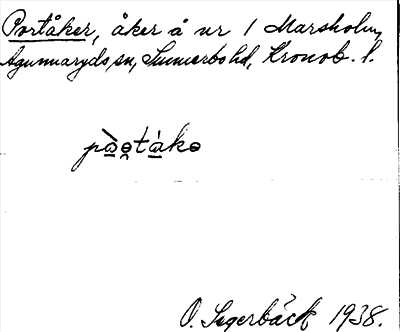 Portåker, åker å nr 1 Marsholm,
Agunnaryds sn, Sunnerbo hd, Kronob. l.
pàe̯tákə
O. Segerbäck 1938.